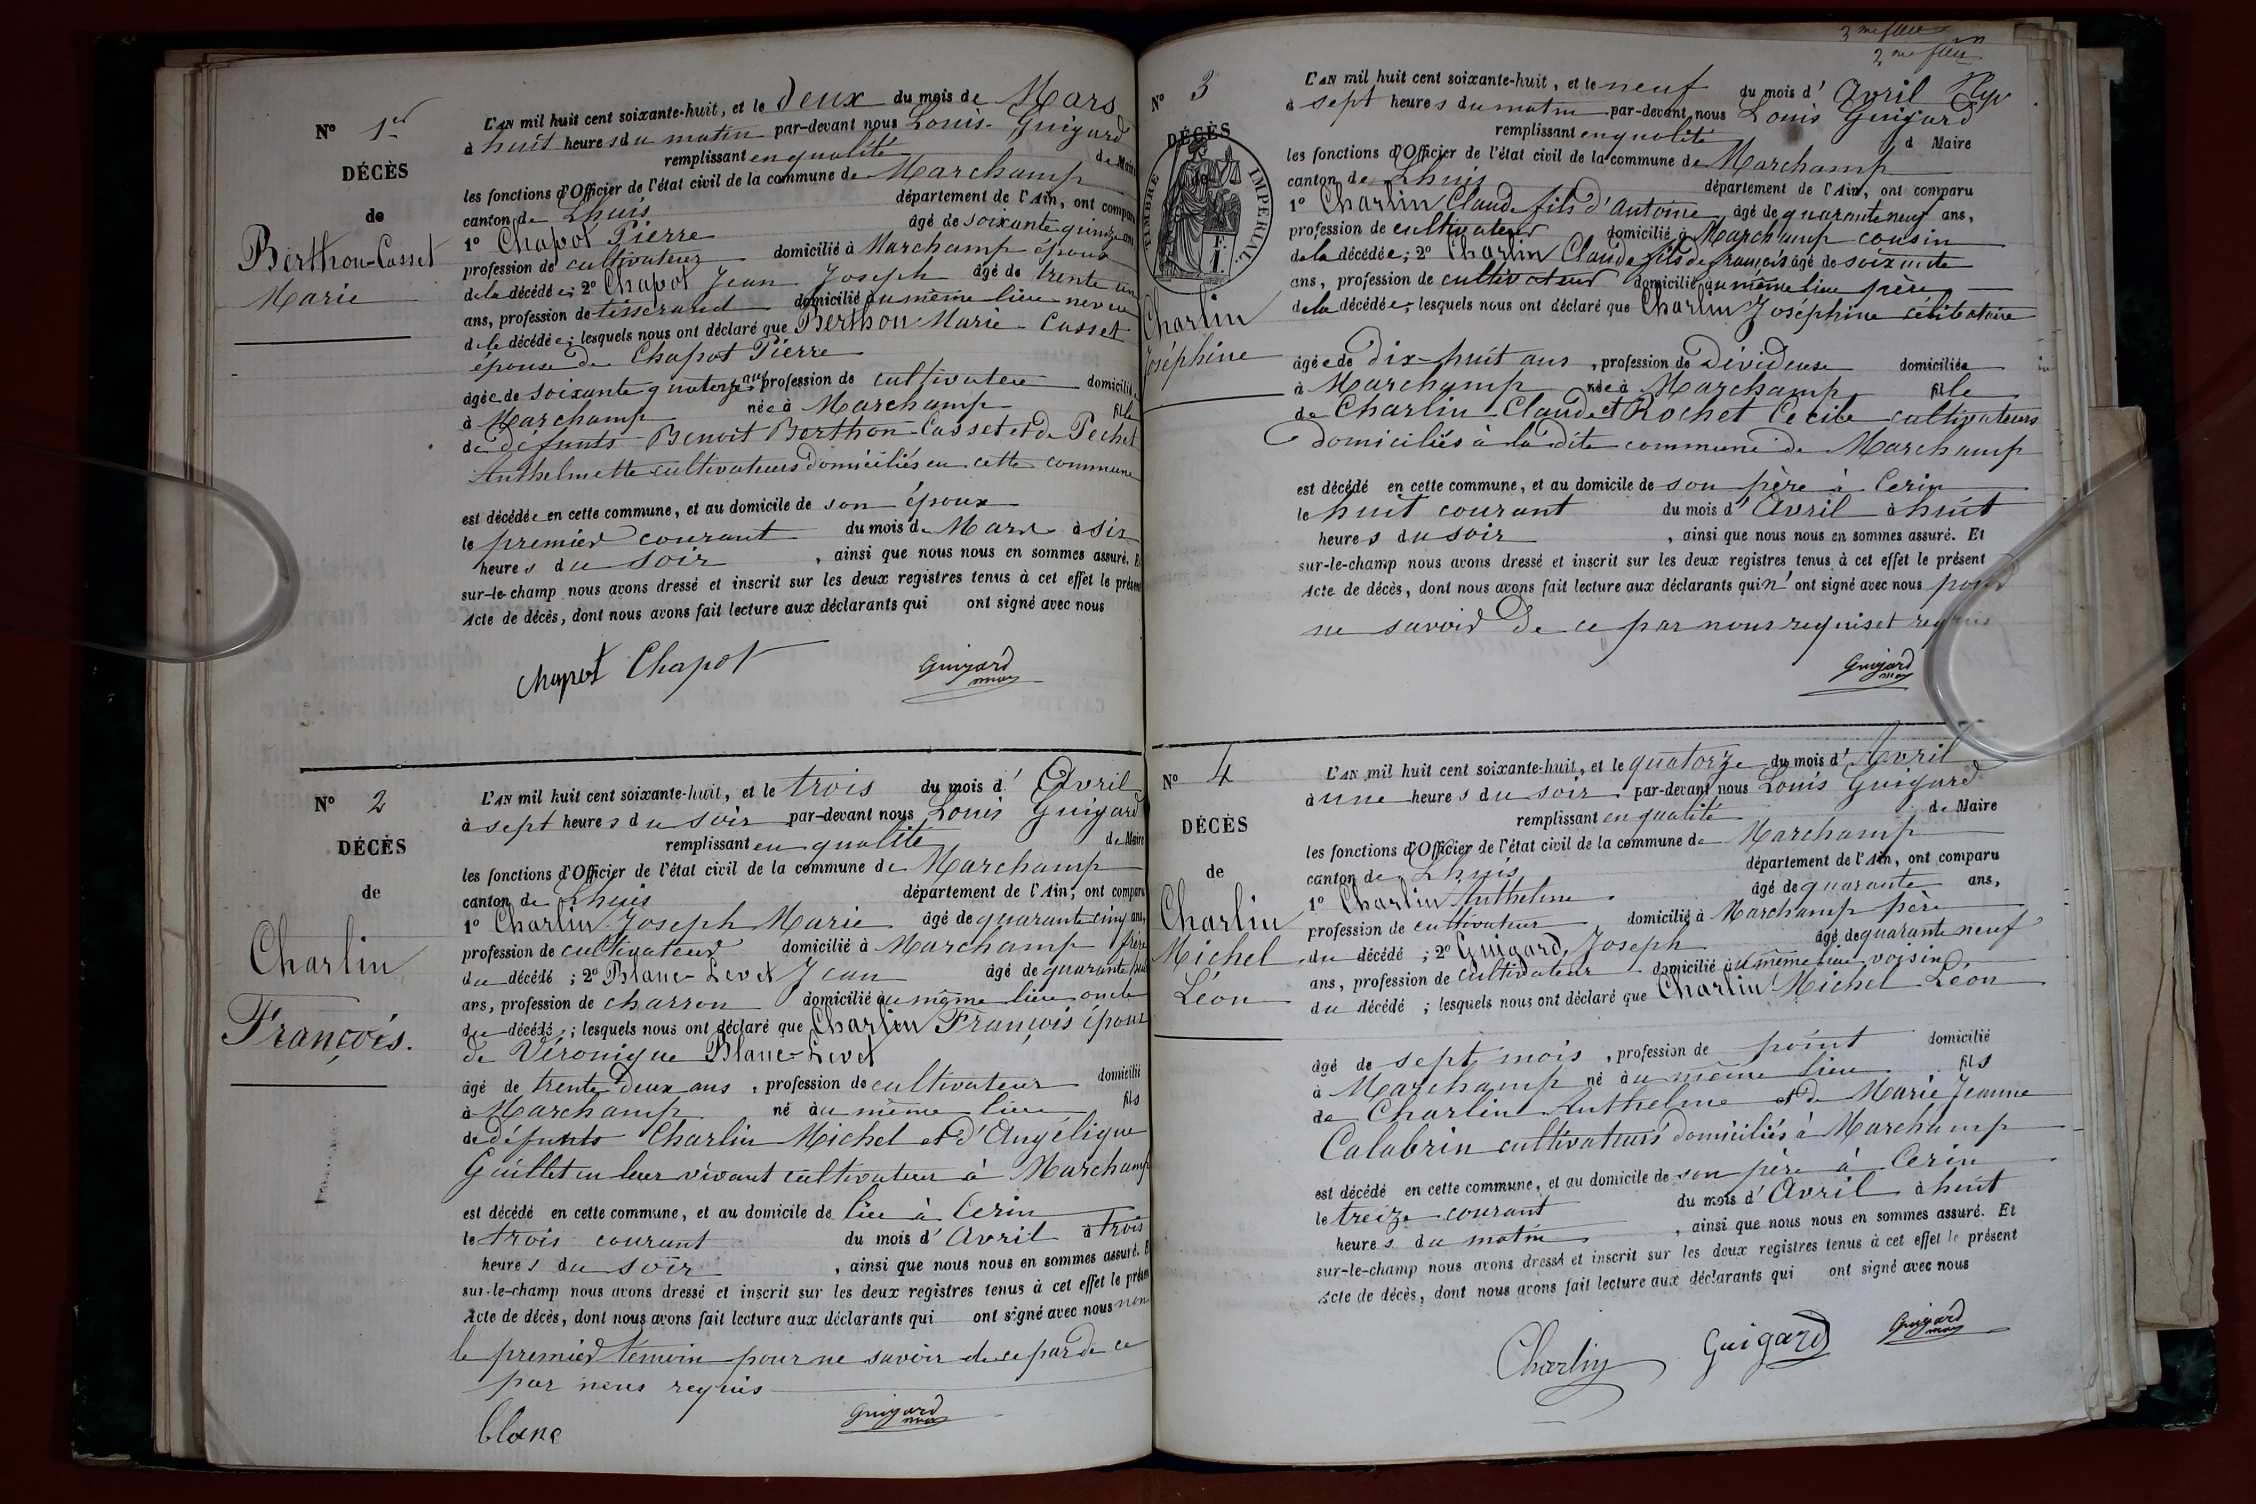 N° 1er
DÉCÈS
de
Berthon-Casset
Marie
L'AN mil huit cent soixante-huit, et le deux du mois de Mars
à huit heures du matin par-devant nous Louis Guigard
remplissant en qualité de Maire
les fonctions d'Officier de l'état civil de la commune de Marchamp
canton de Lhuis département de l'Ain, ont comparu
1° Chapot Pierre âgé de soixante quinze ans
profession de cultivateur domicilié à Marchamp époux
de la décédée; 2° Chapot Jean Joseph âgé de trente un
ans, profession de tisserand domicilié au même lieu neveu
de la décédée; lesquels nous ont déclaré que Berthon Marie Casset
épouse de Chapot Pierre
âgée de soixante quatorze ans profession de cultivatere domicilié
à Marchamp née à Marchamp fille
de défunts Benoit Berthon-Casset et de Pechet
Anthelmette cultivateurs domiciliés en cette commune
est décédée en cette commune, et au domicile de son époux
le premier courant du mois de Mars à six
heures du soir, ainsi que nous nous en sommes assuré. Et
sur-le-champ nous avons dressé et inscrit sur les deux registres tenus à cet effet le présent
Acte de décès, dont nous avons fait lecture aux déclarants qui ont signé avec nous
Chapot Chapot Guigard maire
N° 2
DÉCÈS
de
Charlin
François.
L'AN mil huit cent soixante-huit, et le trois du mois d'Avril
à sept heures du soir par-devant nous Louis Guigard
remplissant en qualité de Maire
les fonctions d'Officier de l'état civil de la commune de Marchamp
canton de Lhuis département de l'Ain, ont comparu
1° Charlin Joseph Marie âgé de quarante cinq ans,
profession de cultivateur domicilié à Marchamp frère
du décédé; 2° Blanc-Levet Jean âgé de quarante
ans, profession de charron domicilié au même lieu oncle
du décédé; lesquels nous ont déclaré que Charlin François époux
de Véronique Blanc-Levet
âgé de trente deux ans, profession de cultivateur domicilié
à Marchamp né au même lieu fils
de défunts Charlin Michel et d'Angélique
Guillet en leur vivant cultivateur à Marchamp
est décédé en cette commune, et au domicile de lieu à Cerin
le trois courant du mois d'Avril à trois
heures du soir, ainsi que nous nous en sommes assuré. Et
sur-le-champ nous avons dressé et inscrit sur les deux registres tenus à cet effet le présent
Acte de décès, dont nous avons fait lecture aux déclarants qui ont signé avec nous non
le premier témoin pour ne savoir de ce par de ce
par nous requis
blanc Guigard maire
2me
N° 3
DÉCÈS
de
TIMBRE IMPERIAL
Charlin
Joséphine
L'AN mil huit cent soixante-huit, et le neuf du mois d'Avril
à sept heures du matin par-devant nous Louis Guigard
remplissant en qualité d Maire
les fonctions d'Officier de l'état civil de la commune de Marchamp
canton de Lhuis département de l'Ain, ont comparu
1° Charlin Claude fils d'Antoine âgé de quarante neuf ans,
profession de cultivateur domicilié à Marchamp cousin
de la décédée; 2° Charlin Claude fils de françois âgé de soixante
ans, profession de cultivateur domicilié au même lieu père
de la décédée; lesquels nous ont déclaré que Charlin Joséphine célibataire
âgée de dix-huit ans, profession de Dévideuse domiciliée
à Marchamp née à Marchamp fille
de Charlin Claude et Rochet Cécile cultivateurs
domiciliés à la dite commune de Marchamp
est décédé en cette commune, et au domicile de son père à Cerin
le huit courant du mois d'Avril à huit
heures du soir, ainsi que nous nous en sommes assuré. Et
sur-le-champ nous avons dressé et inscrit sur les deux registres tenus à cet effet le présent
Acte de décès, dont nous avons fait lecture aux déclarants qui n'ont signé avec nous pour
ne savoir de ce par nous requis et requis
Guigard maire
N° 4
DÉCÈS
de
Charlin
Michel
Léon
L'AN mil huit cent soixante-huit, et le quatorze du mois d'Avril
à une heures du soir par-devant nous Louis Guigard
remplissant en qualité de Maire
les fonctions d'Officier de l'état civil de la commune de Marchamp
canton de Lhuis département de l'Ain, ont comparu
1° Charlin Anthelme âgé de quarante ans,
profession de cultivateur domicilié à Marchamp père
du décédé; 2° Guigard, Joseph âgé de quarante neuf
ans, profession de cultivateur domicilié au même lieu voisin
du décédé; lesquels nous ont déclaré que Charlin Michel Léon
âgé de sept mois, profession de point domicilié
à Marchamp né au même lieu fils
de Charlin Anthelme et de Marie Jeanne
Calabrin cultivateurs domiciliés à Marchamp
est décédé en cette commune, et au domicile de son père à Cerin
le treize courant du mois d'Avril à huit
heures du matin, ainsi que nous nous en sommes assuré. Et
sur-le-champ nous avons dressé et inscrit sur les deux registres tenus à cet effet le présent
Acte de décès, dont nous avons fait lecture aux déclarants qui ont signé avec nous
Charlin Guigard Guigard maire